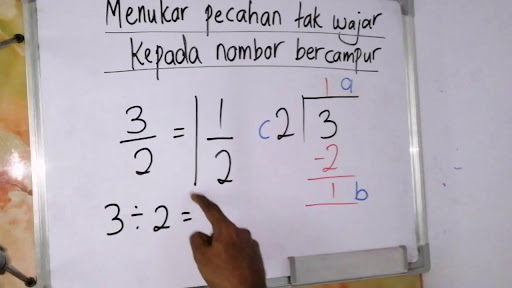 Menukar pecahan tak wajar
kepada nombor bercampur
3/2 = 1 1/2
3 ÷ 2 =
1 a
c 2 ⟌ 3
-2
1 b